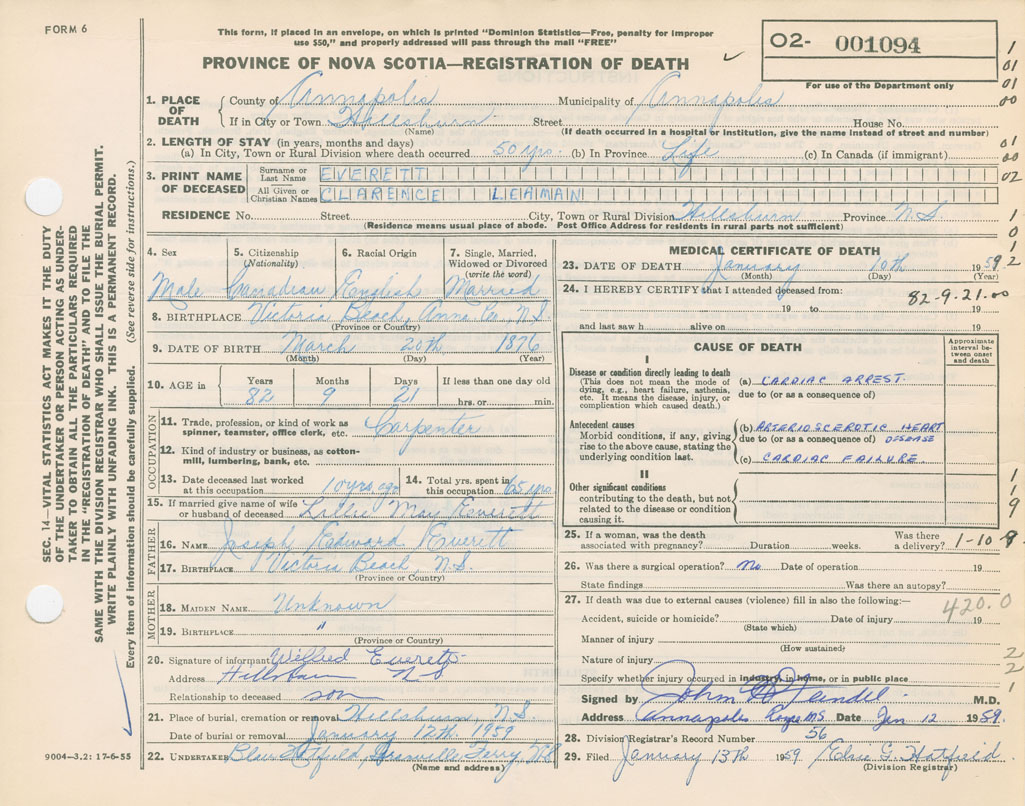 FORM 6
This form, if placed in an envelope, on which is printed "Dominion Statistics—Free, penalty for improper
use $50," and properly addressed will pass through the mail "FREE"
PROVINCE OF NOVA SCOTIA—REGISTRATION OF DEATH
02- 001094
For use of the Department only
1
01
01
00
01
00
02
1
0
1
2
1. PLACE OF DEATH
County of Annapolis Municipality of Annapolis
If in City or Town Hillsburn Street House No.
(Name) (If death occurred in a hospital or institution, give the name instead of street and number)
2. LENGTH OF STAY (in years, months and days)
(a) In City, Town or Rural Division where death occurred 50 yrs. (b) In Province Life (c) In Canada (if immigrant)
3. PRINT NAME OF DECEASED
Surname or Last Name EVERETT
All Given or Christian Names CLARENCE LEAMAN
RESIDENCE No. Street City, Town or Rural Division Hillsburn Province N.S.
(Residence means usual place of abode. Post Office Address for residents in rural parts not sufficient)
4. Sex
Male
5. Citizenship (Nationality)
Canadian
6. Racial Origin
English
7. Single, Married, Widowed or Divorced (write the word)
Married
8. BIRTHPLACE Victoria Beach, Anna Co, N.S.
(Province or Country)
9. DATE OF BIRTH March 20th 1876
(Month) (Day) (Year)
10. AGE in
Years Months Days If less than one day old
82 9 21 hrs. or min.
OCCUPATION
11. Trade, profession, or kind of work as spinner, teamster, office clerk, etc. Carpenter
12. Kind of industry or business, as cotton-mill, lumbering, bank, etc.
13. Date deceased last worked at this occupation 10 yrs ago
14. Total yrs. spent in this occupation 65 yrs
15. If married give name of wife or husband of deceased Lillie May Everett
FATHER
16. NAME Joseph Edward Everett
17. BIRTHPLACE Victoria Beach, N.S.
(Province or Country)
MOTHER
18. MAIDEN NAME Unknown
19. BIRTHPLACE "
(Province or Country)
20. Signature of informant Wilfred Everett
Address Hillsburn N S
Relationship to deceased son
21. Place of burial, cremation or removal Hillsburn N.S.
Date of burial or removal January 12th 1959
22. UNDERTAKER Hatfield, Granville Ferry N S
(Name and address)
MEDICAL CERTIFICATE OF DEATH
23. DATE OF DEATH January 10th 1959
(Month) (Day) (Year)
24. I HEREBY CERTIFY that I attended deceased from:
82-9-21.00
19 to 19
and last saw h alive on 19
CAUSE OF DEATH
Approximate interval between onset and death
I
Disease or condition directly leading to death
(This does not mean the mode of dying, e.g., heart failure, asthenia, etc. It means the disease, injury, or complication which caused death.)
(a) CARDIAC ARREST.
due to (or as a consequence of)
Antecedent causes
Morbid conditions, if any, giving rise to the above cause, stating the underlying condition last.
(b) ARTERIOSCEROTIC HEART
due to (or as a consequence of) DISEASE
(c) CARDIAC FAILURE
II
Other significant conditions
contributing to the death, but not related to the disease or condition causing it.
1
1
9
25. If a woman, was the death associated with pregnancy? Duration weeks. Was there a delivery?
1-10-9
26. Was there a surgical operation? No Date of operation 19
State findings Was there an autopsy?
27. If death was due to external causes (violence) fill in also the following:—
420.0
Accident, suicide or homicide? Date of injury 19
(State which)
Manner of injury
(How sustained)
Nature of injury
Specify whether injury occurred in industry, in home, or in public place
2
2
1
Signed by John M.D.
Address Annapolis Royal NS Date Jan 12 1959.
28. Division Registrar's Record Number 56
29. Filed January 13th 1959 Hatfield
(Division Registrar)
SEC. 14—VITAL STATISTICS ACT MAKES IT THE DUTY
OF THE UNDERTAKER OR PERSON ACTING AS UNDER-
TAKER TO OBTAIN ALL THE PARTICULARS REQUIRED
IN THE "REGISTRATION OF DEATH" AND TO FILE THE
SAME WITH THE DIVISION REGISTRAR WHO SHALL ISSUE THE BURIAL PERMIT.
WRITE PLAINLY WITH UNFADING INK. THIS IS A PERMANENT RECORD.
Every item of information should be carefully supplied. (See reverse side for instructions.)
9004—3.2: 17-6-55